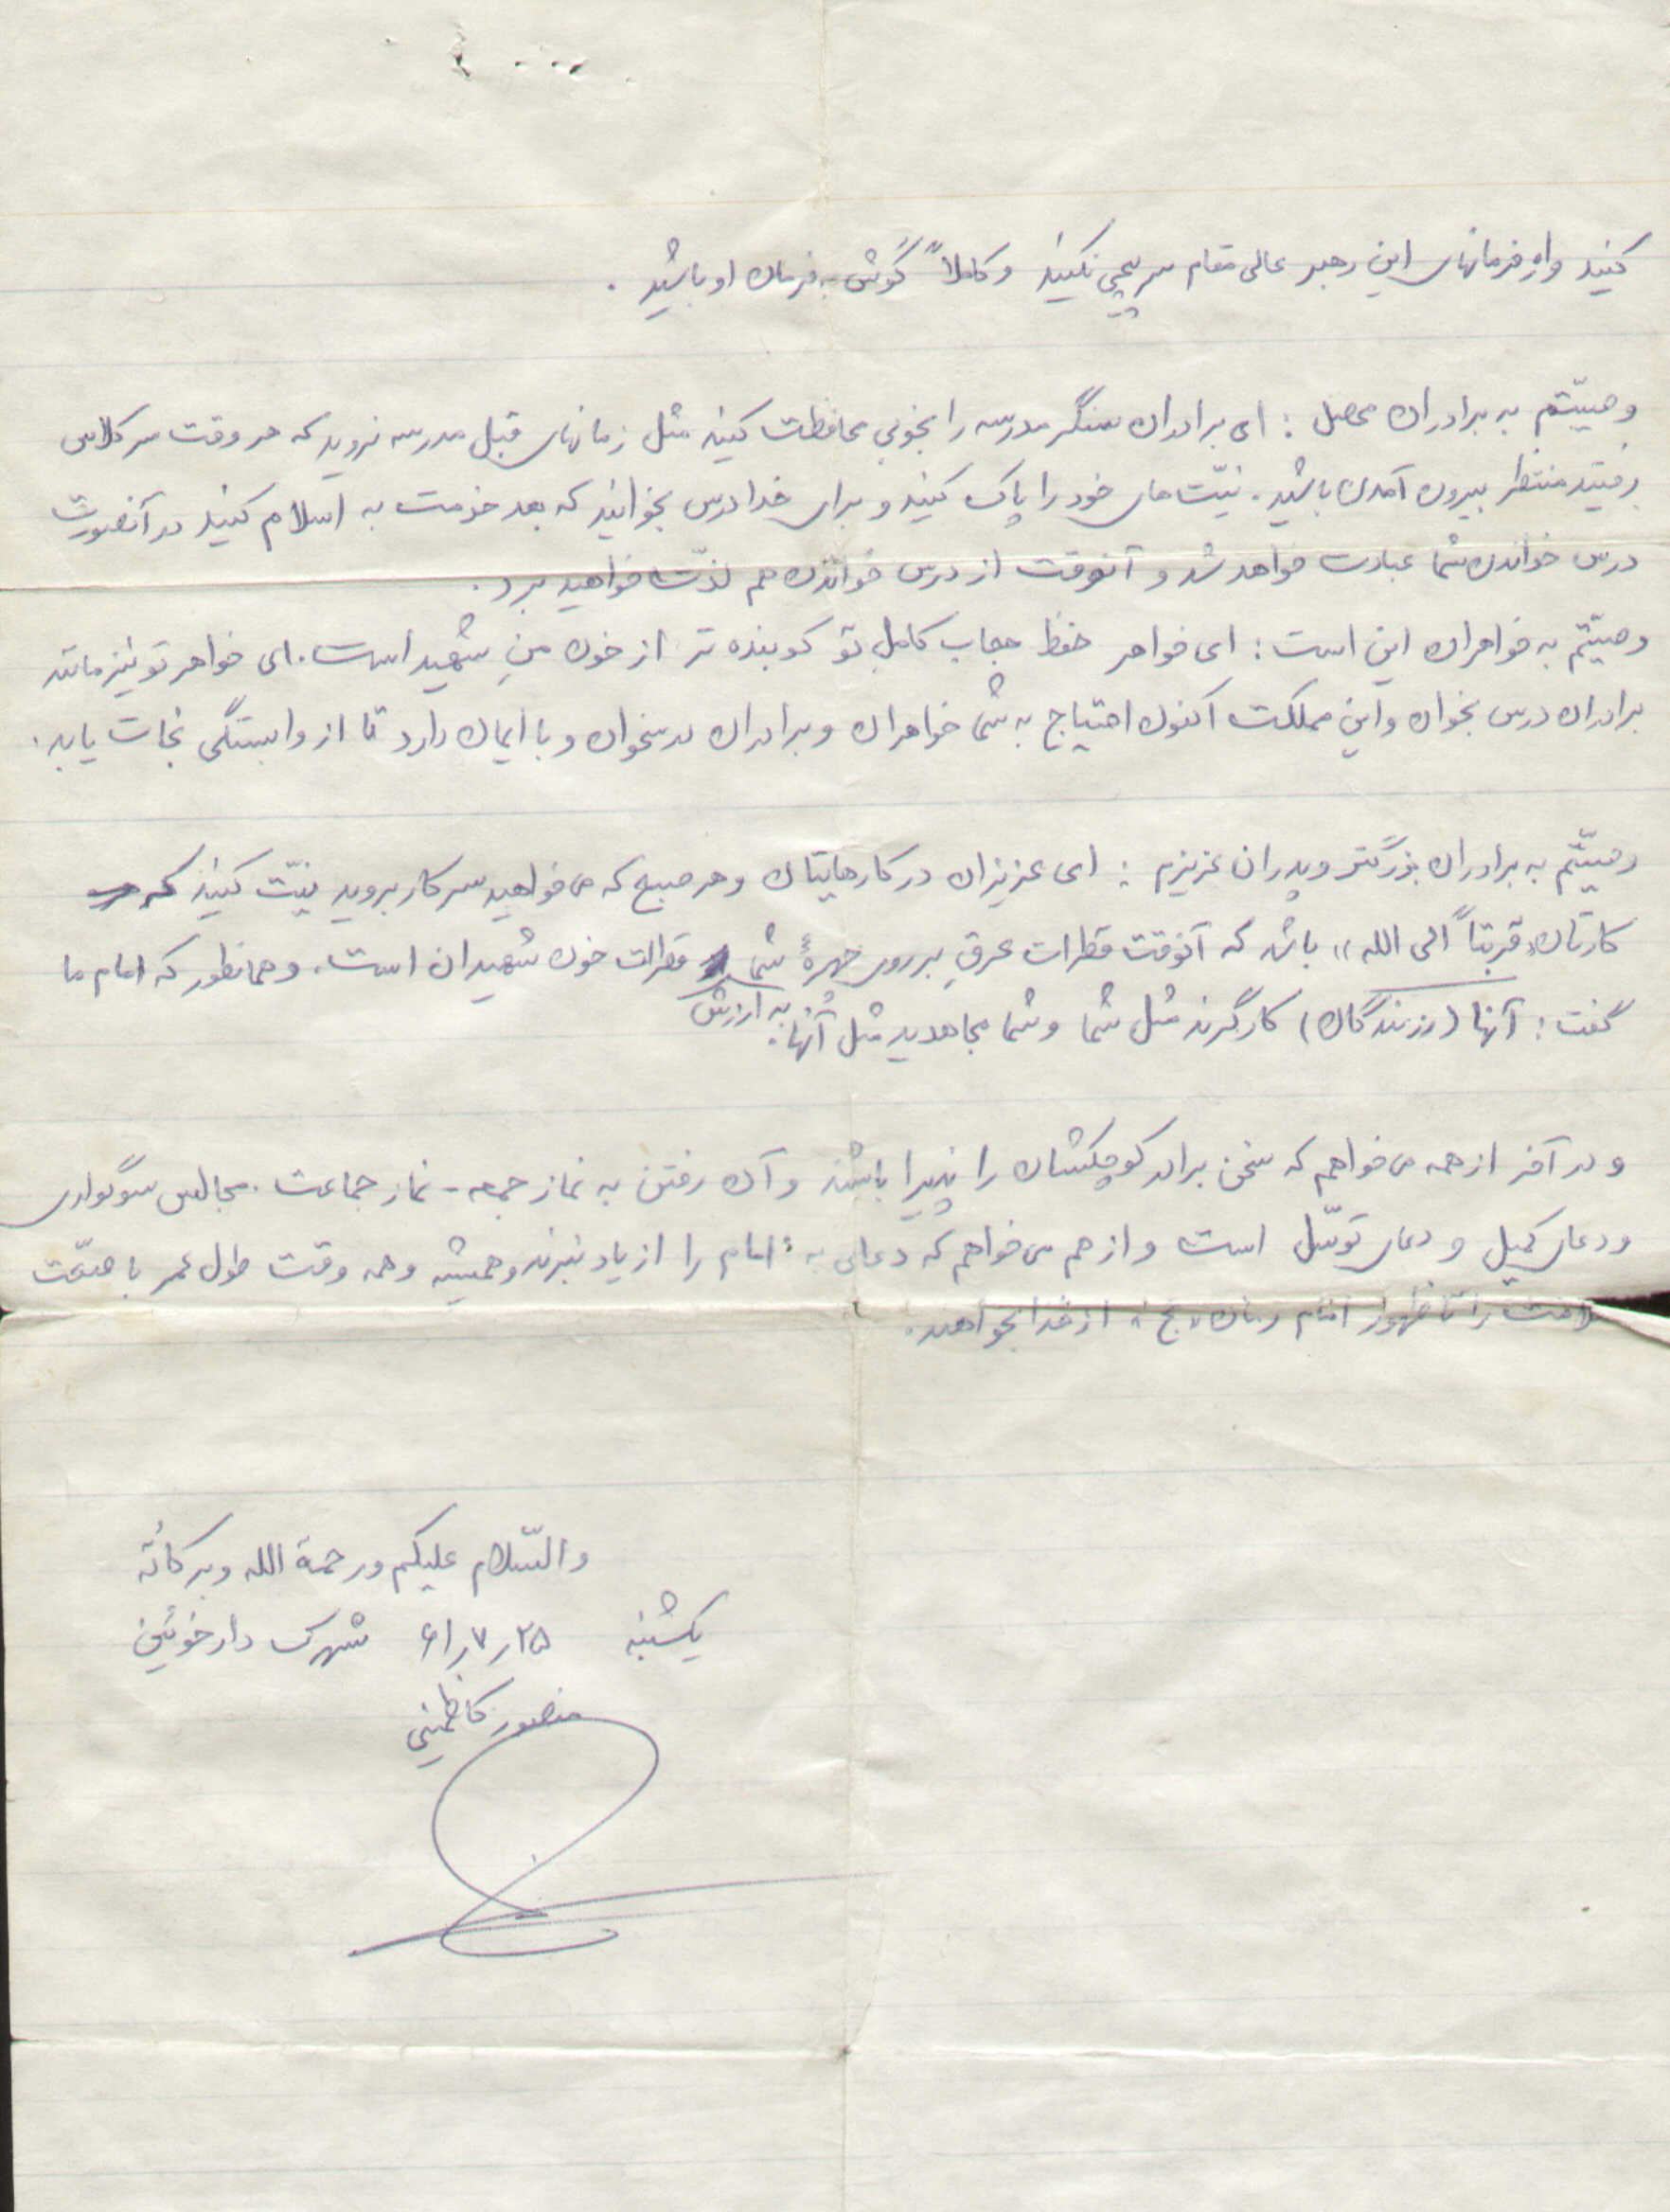 کنید و از فرمانهای این رهبر عالی مقام سرپیچی نکنید و کاملاً گوش به فرمان او باشید .
وصیّتم به برادران محصل : ای برادران سنگر مدرسه را بخوبی محافظت کنید مثل زمانهای قبل مدرسه نروید که هر وقت سر کلاس
رفتید منتظر بیرون آمدن باشید . نیّت های خود را پاک کنید و برای خدا درس بخوانید که بعد خدمت به اسلام کنید در آنصورت
درس خواندن شما عبادت خواهد شد و آنوقت از درس خواندن هم لذّت خواهید برد .
وصیّتم به خواهران این است : ای خواهر حفظ حجاب کامل تو کوبنده تر از خون منِ شهید است . ای خواهر تو نیز مانند
برادران درس بخوان و این مملکت اکنون احتیاج به شما خواهران و برادران درسخوان و با ایمان دارد تا از وابستگی نجات یابد .
وصیّتم به برادران بزرگتر و پدران عزیزم : ای عزیزان در کارهایتان و هر صبح که می خواهید سر کار بروید نیّت کنید که
کارتان « قربتاً الی الله » باشد که آنوقت قطرات عرقِ بر روی چهرهٔ شما به ارزش قطرات خون شهیدان است . و همانطور که امام ما
گفت : آنها (رزمندگان) کارگرند مثل شما و شما مجاهدید مثل آنها .
و در آخر از همه می خواهم که سخن برادر کوچکشان را پذیرا باشند و آن رفتن به نماز جمعه - نماز جماعت . مجالس سوگواری
و دعای کمیل و دعای توسّل است و از همه می خواهم که دعای به امام را از یاد نبرند و همیشه و همه وقت طول عمر با صحّت
سلامت را تا ظهور امام زمان « عج » از خدا بخواهند .
والسّلام علیکم ورحمة الله وبرکاته
یکشنبه ۲۵ر۷ر۶۱ شهرک دارخوئین
منصور کاظمینی